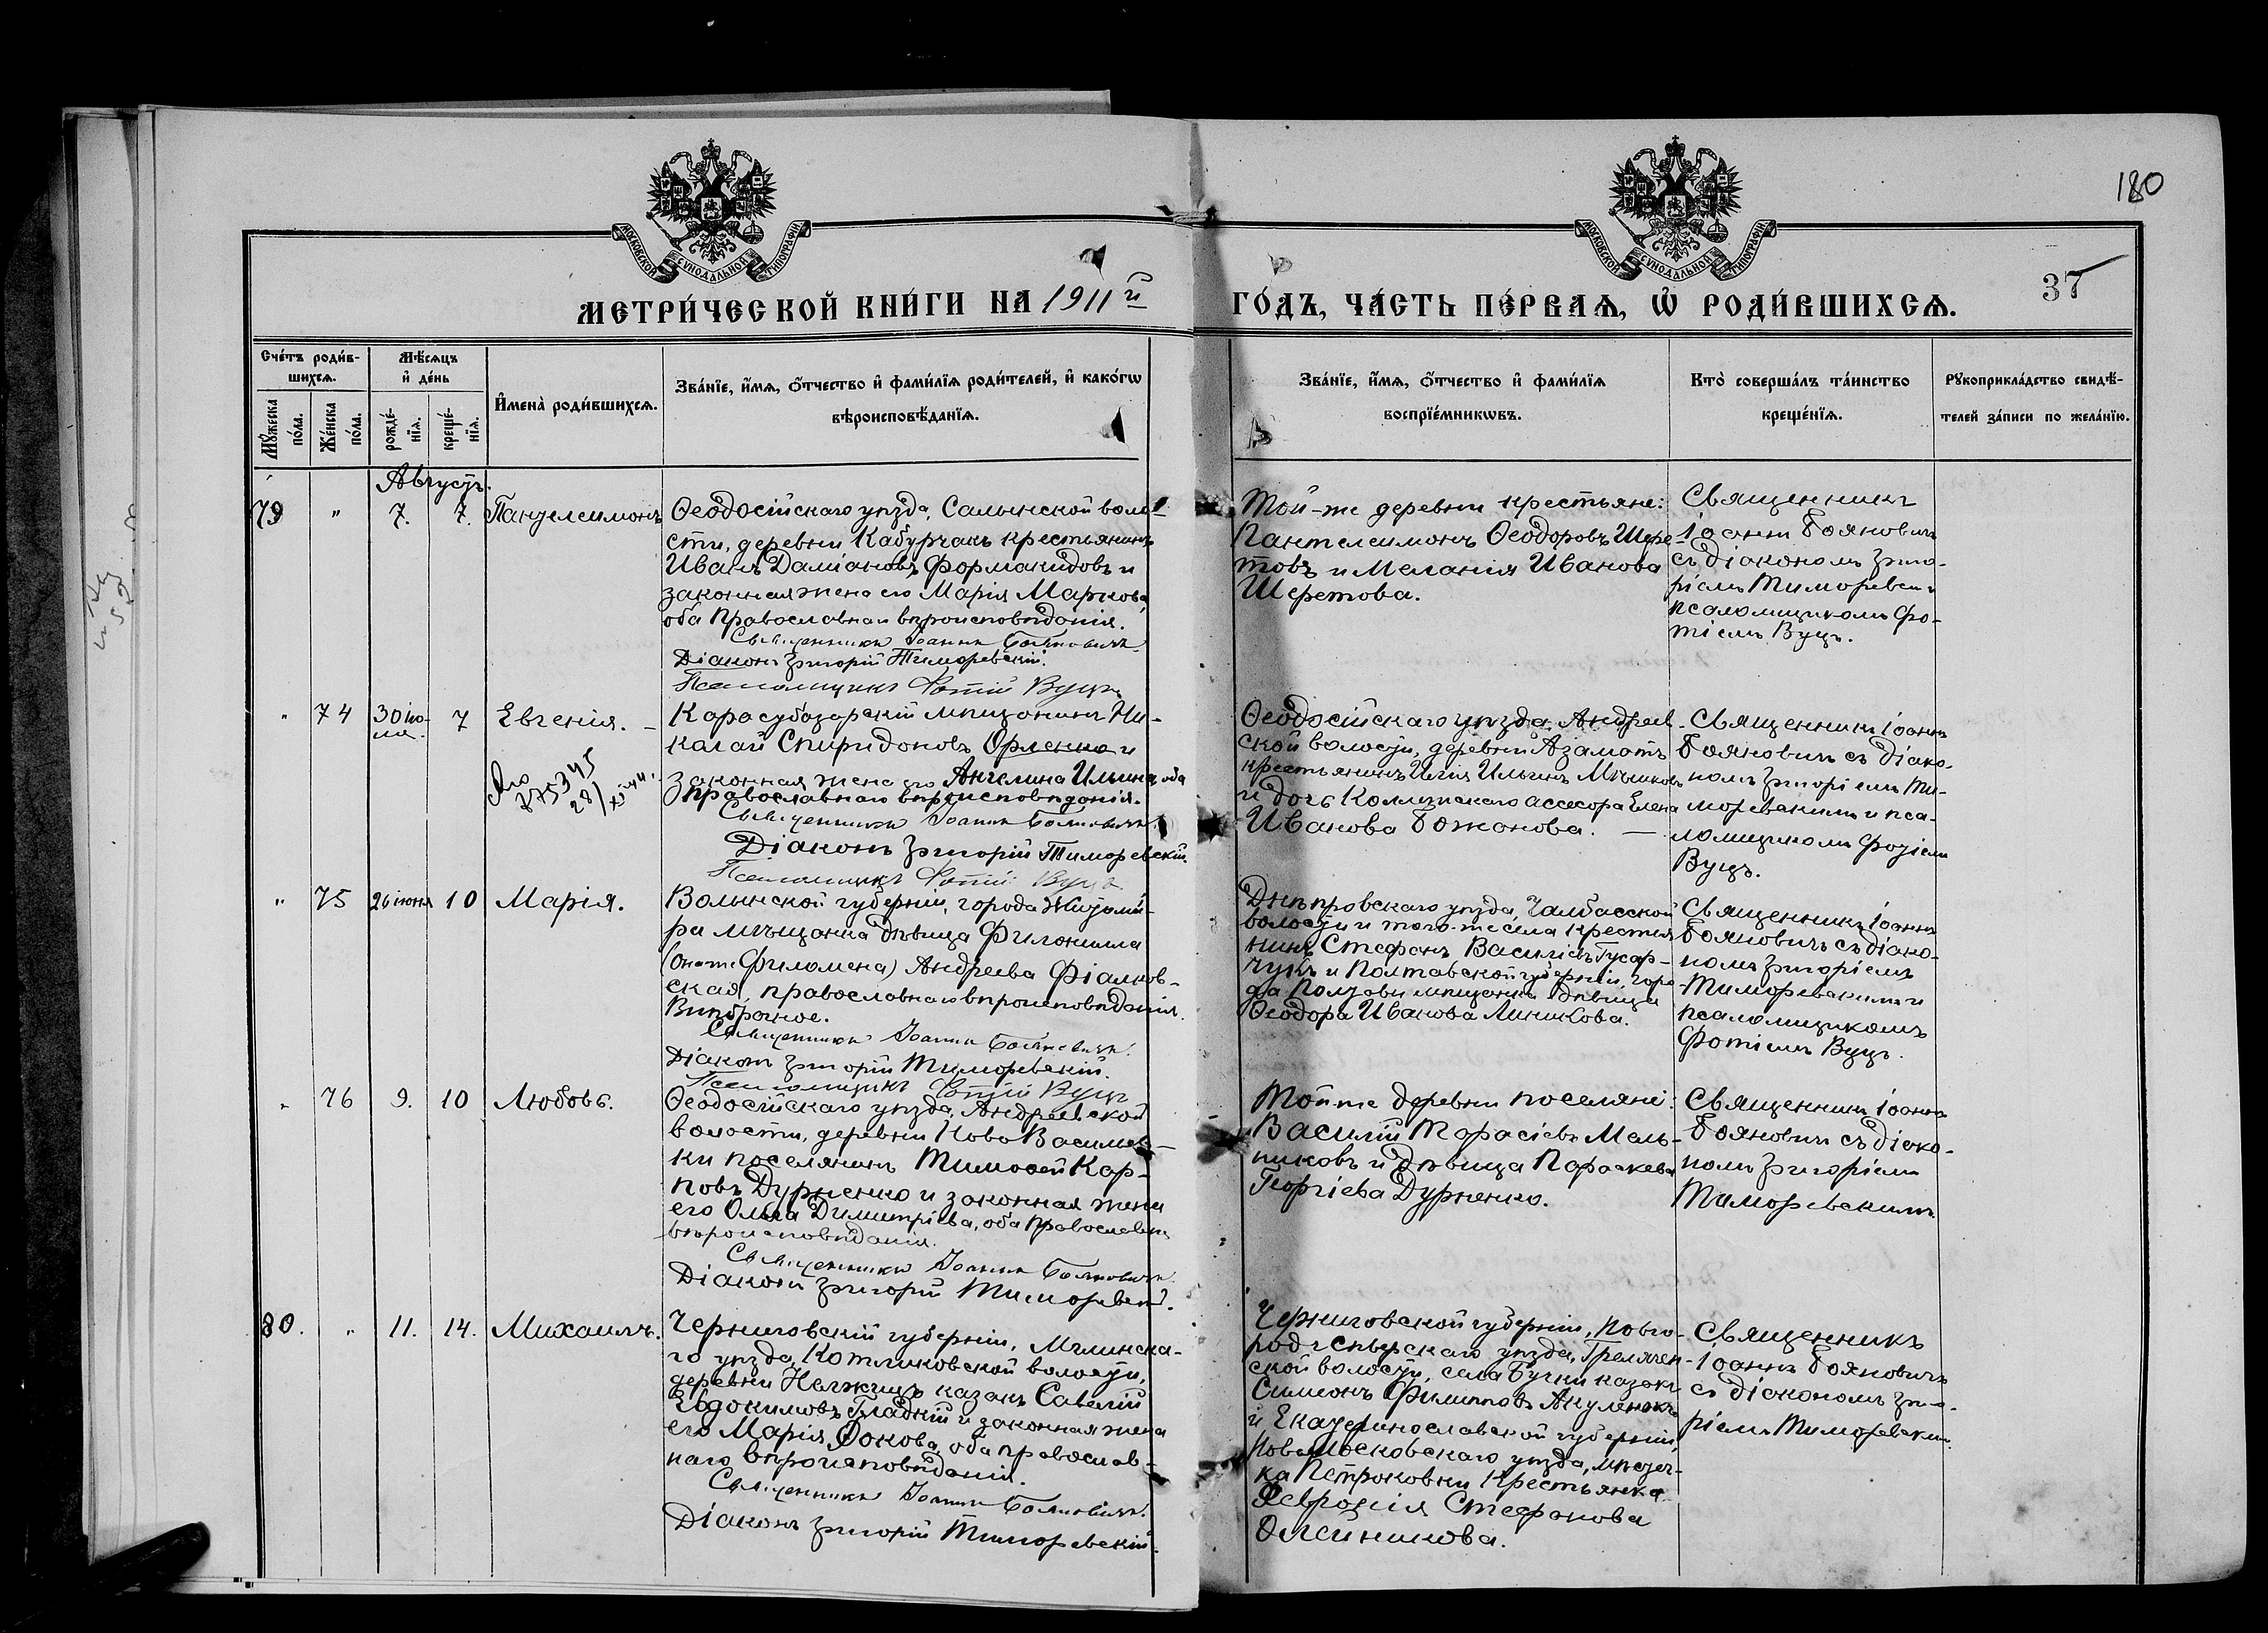 180
37
МОСКОВСКОЙ СѴНОДАЛЬНОЙ ТИПОГРАФІИ
МОСКОВСКОЙ СѴНОДАЛЬНОЙ ТИПОГРАФІИ
МЕТРИ́ЧЕСКОЙ КНИ́ГИ НА 1911й ГО́ДЪ, ЧА́СТЬ ПЕ́РВАѦ, Ѡ҆ РОДИ́ВШИХСѦ.
Сче́тъ роди́в-
шихсѧ.
Мꙋ́жеска по́ла.
Же́нска по́ла.
Мѣ́сѧцъ
и҆ де́нь
рожде́-
нїѧ.
креще́-
нїѧ.
И҆мена̀ роди́вшихсѧ.
Зва́нїе, и҆́мѧ, ѻ҆́тчество и҆ фами́лїѧ роди́телей, и҆ како́гѡ
вѣроисповѣ́данїѧ.
Зва́нїе, и҆́мѧ, ѻ҆́тчество и҆ фами́лїѧ
воспрїе́мникѡвъ.
Кто̀ соверша́лъ та́инство
креще́нїѧ.
Рꙋкоприкла́дство свидѣ́-
телей за́писи по жела́нїю.
Августъ.
79 " 7. 7. Пантелеимонъ
Ѳеодосійскаго уѣзда, Салынской воло-
сти, деревни Кабурчакъ крестьянинъ
Иванъ Даміановъ Формакидовъ и
законная жена его Марія Маркова,
оба Православнаго вѣроисповѣданія.
Священникъ Іоаннъ Бояновичъ.
Діаконъ Григорій Тиморевскій.
Псаломщикъ Фотій Вуцъ
Той-же деревни крестьяне:
Пантелеимонъ Ѳеодоровъ Шере-
товъ и Меланія Иванова
Шеретова.
Священникъ
Іоаннъ Бояновичъ
съ діакономъ Григо-
ріемъ Тиморевск. и
псаломщикомъ Фо-
тіемъ Вуцъ.
" 74 30 ію-
ля. 7 Евгенія.
775345
28/XI-44.
Карасубазарскій мѣщанинъ Ни-
колай Спиридоновъ Орленко и
законная жена его Ангелина Ильина, оба
православнаго вѣроисповѣданія.
Священникъ Іоаннъ Бояновичъ
Діаконъ Григорій Тиморевскій.
Псаломщикъ Фотій Вуцъ
Ѳеодосійскаго уѣзда, Андреев-
ской волости, деревни Азаматъ
крестьянинъ Илія Ильинъ
и дочь Коллежскаго ассесора Елена
Иванова Божанова.
Священникъ Іоаннъ
Бояновичъ съ діако-
номъ Григоріемъ Ти-
моревскимъ и пса-
ломщикомъ Фотіемъ
Вуцъ.
" 75 26 іюня 10 Марія.
Волынской губерніи, города Житоми-
ра мѣщанка дѣвица Филонилла
(она же Филомена) Андреева Фіалков-
ская, православнаго вѣроисповѣданія.
Внѣбрачное.
Священникъ Іоаннъ Бояновичъ.
Діаконъ Григорій Тиморевскій.
Псаломщикъ Фотій Вуцъ
Днѣпровскаго уѣзда, Чалбасской
волости и того-же села крестья-
нинъ Стефанъ Василіевъ Гусар-
чукъ и Полтавской губерніи, горо-
да Полтавы мѣщанка дѣвица
Ѳеодора Иванова Линикова.
Священникъ Іоаннъ
Бояновичъ съ діако-
номъ Григоріемъ
Тиморевскимъ и
псаломщикомъ
Фотіемъ Вуцъ.
" 76 9. 10 Любовь.
Ѳеодосійскаго уѣзда, Андреевской
волости, деревни Ново Васильев-
ки поселянинъ Тимоѳей Кар-
повъ Дурненко и законная жена
его Ольга Димитріева, оба православн.
вѣроисповѣданія.
Священникъ Іоаннъ Бояновичъ.
Діаконъ Григорій Тиморевскій.
Той-же деревни поселяне:
Василій Тарасіевъ Мель-
никовъ и дѣвица Параскева
Георгіева Дурненко.
Священникъ Іоаннъ
Бояновичъ съ діако-
номъ Григоріемъ
Тиморевскимъ
80. " 11. 14. Михаилъ.
Черниговскій губерніи, Мглинска-
го уѣзда, Котляковской волости,
деревни казакъ Савелій
Евдокимовъ Гладкій и законная жена
его Марія Фокова, оба православ-
наго вѣроисповѣданія.
Священникъ Іоаннъ Бояновичъ.
Діаконъ Григорій Тиморевскій.
Черниговской губерніи, Новго-
родсѣверскаго уѣзда,
ской волости, села Бучки казакъ
Симеонъ Филипповъ Акуленокъ
и Екатеринославской губерніи,
Новомосковскаго уѣзда, мѣстеч-
ка Петроковки крестьянка
Евфросинія Стефанова
Олейникова.
Священникъ
Іоаннъ Бояновичъ
съ діакономъ Григо-
ріемъ Тиморевским.